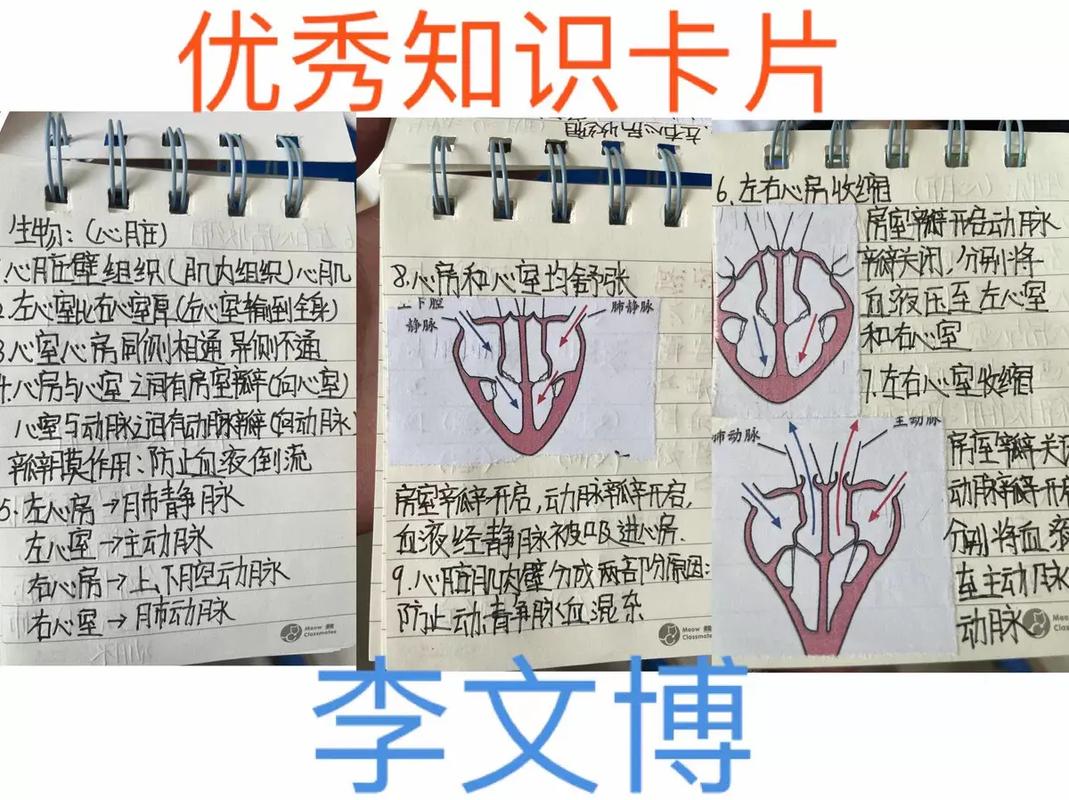 优秀知识卡片
生物:(心脏)
1.心脏壁组织(肌肉组织)心肌
2.左心室比右心室厚(左心室输到全身)
3.心室心房同侧相通 异侧不通
4.心房与心室之间有房室瓣(向心室)
心室与动脉之间有动脉瓣(向动脉)
瓣膜作用:防止血液倒流
5.左心房→肺静脉
左心室→主动脉
右心房→上、下腔动脉
右心室→肺动脉
Meow
Classmates
8.心房和心室均舒张
上下腔
静脉
肺静脉
房室瓣开启,动脉瓣开启,
血液经静脉被吸进心房.
9.心脏肌肉壁分成两部分原因:
防止动.静脉血混杂
Meow
Classmates
6.左右心房收缩
房室瓣开启动脉
瓣关闭,分别将
血液压至左心室
和右心室
7.左右心室收缩
肺动脉
主动脉
房室瓣关
动脉瓣开
分别将血液
至主动脉
动脉
李文博